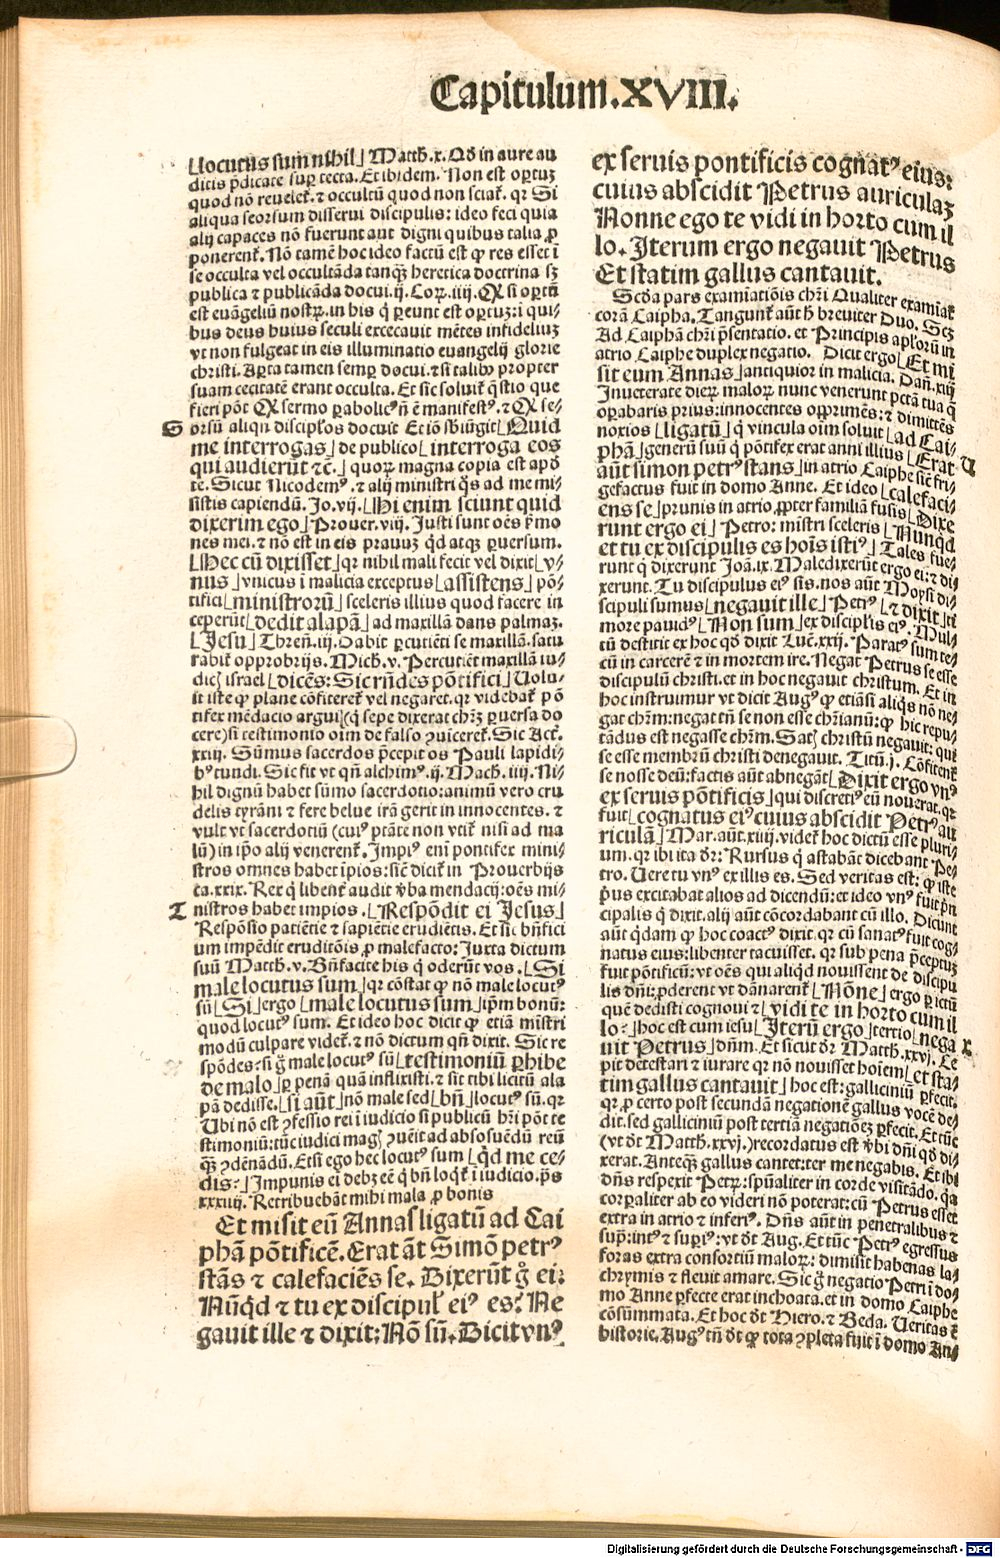 Capitulum.XVIII.
⌊locutus sum nihil⌋ Matth.x.Qd̄ in aure au
ditis p̄dicate suꝑ tecta. Et ibidem. Non est oꝑtuꝫ
quod nō reuelet᷑.⁊ occultū quod non sciat᷑. qꝛ Si
aliqua seorsum disserui discipulis: ideo feci quia
alij capaces nō fuerunt aut digni quibus talia ꝓ
ponerent᷑. Nō tamē hoc ideo factū est ꝙ res esset ī
se occulta vel occultāda tanqꝫ heretica doctrina sꝫ
publica ⁊ publicāda docui.ij. Coꝝ.iiij. Qꝫ si oꝑtū
est euāgeliū nostꝝ.in his q̄ ꝑeunt est oꝑtuꝫ:i qui⸗
bus deus huius seculi excecauit mētes infideliuꝫ
vt non fulgeat in eis illuminatio euangelij glorie
christi. Aꝑta tamen semꝑ docui.⁊ si talibꝰ propter
suam cecitatē erant occulta. Et sic soluit᷑ q̄stio que
fieri pōt Qꝫ sermo ꝑabolicꝰ n̄ ē manifestꝰ.⁊ Qꝫ se⸗
S orsū aliqn̄ discipl'os docuit Et iō sb̄iūgit⌊Quid
me interrogas⌋de publico⌊interroga eos
qui audierūt ⁊c̄.⌋quoꝝ magna copia est apd̄
te. Sicut Nicodemꝰ.⁊ alij ministri q̄s ad me mi⸗
sistis capiendū. Jo.vij.⌊Hi enim sciunt quid
dixerim ego⌋Prouer.viij. Justi sunt oēs ẜmo
nes mei.⁊ nō est in eis prauuꝫ qd̄ atqꝫ ꝑuersum.
⌊Hec cū dixisset⌋qꝛ nihil mali fecit vel dixit⌊v⸗
nus⌋vnicus ī malicia exceptus⌊assistens⌋pō⸗
tifici⌊ministroꝝ⌋sceleris illius quod facere in
ceperūt⌊dedit alapā⌋ad maxillā dans palmaꝫ.
⌊Jesu⌋Thren̄.iij. Dabit ꝑcutiēti se maxillā.satu
rabit᷑ opprobrijs. Mich.v. Percutiēt maxillā iu⸗
dic̄ israel⌊dicēs: Sic rn̄des pōtifici⌋Uolu⸗
it iste ꝙ plane cōfiteret᷑ vel negaret.qꝛ videbat᷑ pō
tifex mēdacio argui(q̄ sepe dixerat chr̄ꝫ ꝑuersa do
cere)si testimonio oīm de falso ꝯuiceret᷑. Sic Act.
xxiij. Sūmus sacerdos p̄cepit os Pauli lapidi⸗
bꝰ tundi. Sic fit vt qn̄ alchimꝰ.ij. Mach.iiij. Ni⸗
hil dignū habet sūmo sacerdotio:animū vero cru
delis tyrāni ⁊ fere belue irā gerit in innocentes.⁊
vult vt sacerdotiū (cuiꝰ ptāte non vtit᷑ nisi ad ma
lū) in ip̄o alij venerent᷑. Impiꝰ eni pontifex mini⸗
stros omnes habet īpios: sic̄ dicit᷑ in Prouerbijs
ca.xxix. Rex q̄ libent᷑ audit v̄ba mendacij:oēs mi⸗
T nistros habet impios.⌊Respōdit ei Jesus⌋
Respōsio patiētie ⁊ sapiētie eruditis. Et sic bn̄fici
um impēdit eruditōis ꝓ malefacto: Juxta dictum
suū Matth.v. Bn̄facite his q̄ oderūt vos.⌊Si
male locutus sum⌋qꝛ cōstat ꝙ nō male locutꝰ
sū⌊Si⌋ergo⌊male locutus sum⌋ip̄m bonū:
quod locutꝰ sum. Et ideo hoc dicit ꝙ etiā mīstri
modū culpare videt᷑.⁊ nō dictum qn̄ dixit. Sic re
spōdes:si g̊ male locutꝰ sū⌊testimoniū ꝑhibe
de malo⌋ꝑ penā quā inflixisti.⁊ sit tibi licitū ala
pā dedisse.⌊si aūt⌋nō male sed⌊bn̄⌋locutꝰ sū.qꝛ
Ubi nō est ꝯfessio rei ī iudicio si publicū hr̄i pōt te
stimoniū:tūc iudici magꝭ ꝯueīt ad absoluēdū reū
qꝫ ꝯdēnādū. Etsi ego hec locutꝰ sum⌊qd̄ me ce⸗
dis:⌋Impunis ei debꝫ eē q̄ bn̄ loqt᷑ ī iudicio. ps̄
xxxiiij. Retribuebāt mihi mala ꝓ bonis
Et misit eū Annas ligatū ad Cai
phā pōtificē. Erat āt Simō petrꝰ
stās ⁊ calefaciēs se. Dixerūt g̊ ei:
Nūqd̄ ⁊ tu ex discipul' eiꝰ es? Ne
gauit ille ⁊ dixit: Nō sū. Dicit vnꝰ
ex seruis pontificis cognatꝰ eius:
cuius abscidit Petrus auriculaꝫ
Nonne ego te vidi in horto cum il
lo. Iterum ergo negauit Petrus
Et statim gallus cantauit.
Scd̄a pars examīatiōis chr̄i Qualiter examīat᷑
corā Caipha. Tangunt᷑ aūt h̄ breuiter Duo. Scꝫ
Ad Caiphā chr̄i p̄sentatio. et Principis apl'oꝝ in
atrio Caiphe duplex negatio. Dicit ergo⌊Et mi
sit eum Annas⌋antiquior in malicia. Dan̄.xiij
Inueterate dieꝝ maloꝝ nunc venerunt pctā tua q̄
oꝑabaris prius:innocentes opprimēs:⁊ dimittēs
noxios⌊ligatū⌋q̄ vincula oīm soluit⌊ad Cai⸗
phā⌋generū suū q̄ pōtifex erat anni illius⌊Erat
aūt simon petrꝰ stans⌋in atrio Caiphe sic̄ fri⸗ V
gefactus fuit in domo Anne. Et ideo⌊calefaci⸗
ens se⌋prunis in atrio ꝓpter familiā fusis⌊Dixe
runt ergo ei⌋Petro: mīstri sceleris⌊Nunqd̄
et tu ex discipulis es hoīs istiꝰ⌋Tales fue⸗
runt q̄ dixerunt Joā.ix. Maledixerūt ergo ei:⁊ di⸗
xerunt. Tu discipulus eiꝰ sis. nos aūt Moysi di⸗
scipuli sumus⌊negauit ille⌋Petrꝰ⌊⁊ dixit⌋ti
more pauidꝰ⌊Non sum⌋ex discipl'is eiꝰ. Mul⸗
tū destitit ex hoc qd̄ dixit Luc̄.xxij. Paratꝰ sum te⸗
cū in carcerē ⁊ in mortem ire. Negat Petrus se esse
discipulū christi.et in hoc negauit christum. Et in
hoc instruimur vt dicit Augꝰ ꝙ etiāsi aliqs nō ne⸗
gat chr̄m:negat tn̄ se non esse chr̄ianū:ꝙ hic repu⸗
tādus est negasse chr̄m. Satꝭ christū negauit: qui
se esse membrū christi denegauit. Titū.j. Cōfitent᷑
se nosse deū:factis aūt abnegāt⌊Dixit ergo vnꝰ
ex seruis pōtificis⌋qui discretiꝰ eū nouerat.qꝛ
fuit⌊cognatus eiꝰ cuius abscidit Petrꝰ au
riculā⌋Mar.aūt.xiiij.videt᷑ hoc dictū esse pluri⸗
um.qꝛ ibi ita dr̄: Rursus q̄ astabāt dicebant Pe⸗
tro. Uere tu vnꝰ ex illis es. Sed veritas est: ꝙ iste
pꝰus excitabat alios ad dicendū:et ideo vnꝰ fuit p̄n
cipalis q̄ dixit. alij aūt cōcordabant cū illo. Dicunt
aūt qd̄am ꝙ hoc coactꝰ dixit.qꝛ cū sanatꝰ fuit cog⸗
natus eius:libenter tacuisset. qꝛ sub pena p̄ceptuꝫ
fuit pōtificū: vt oēs qui aliqd̄ nouissent de discipu
lis dn̄i:ꝓderent vt dānarent᷑⌊Nōne⌋ergo ꝑ ictū
quē dedisti cognoui ⁊⌊vidi te in horto cum il
lo:⌋hoc est cum iesu⌊Iterū ergo⌋tertio⌊nega X
uit Petrus⌋dn̄m. Et sicut dr̄ Matth.xxvj. Ce⸗
pit detestari ⁊ iurare qꝛ nō nouisset hoīem⌊et sta⸗
tim gallus cantauit⌋hoc est:galliciniū ꝑfecit.
qꝛ ꝓ certo post secundā negationē gallus vocē de⸗
dit.sed galliciniū post tertiā negationeꝫ ꝑfecit. Et tūc
(vt dr̄ Matth.xxvj.)recordatus est v̄bi dn̄i qd̄ di⸗
xerat. Anteqꝫ gallus cantet:ter me negabis. Et ibi
dn̄s respexit Petꝝ:spūaliter in corde visitādo. q̄a
corꝑaliter ab eo videri nō poterat:cū Petrus esset
extra in atrio ⁊ inferiꝰ. Dn̄s aūt in penetralibus ⁊
supꝰ:intꝰ ⁊ supiꝰ:vt dr̄ Aug. Et tūc Petrꝰ egressus
foras extra consortiū maloꝝ: dimisit habenas la⸗
chrymis ⁊ fleuit amare. Sic g̊ negatio Petri ī do⸗
mo Anne ꝑfecte erat inchoata.et in domo Caiphe
cōsūmata. Et hoc dr̄ Hiero.⁊ Beda. Ueritas ē
historie. Augꝰ tn̄ dr̄ ꝙ tota ꝯpleta fuit ī domo An⸗
Digitalisierung gefördert durch die Deutsche Forschungsgemeinschaft - DFG